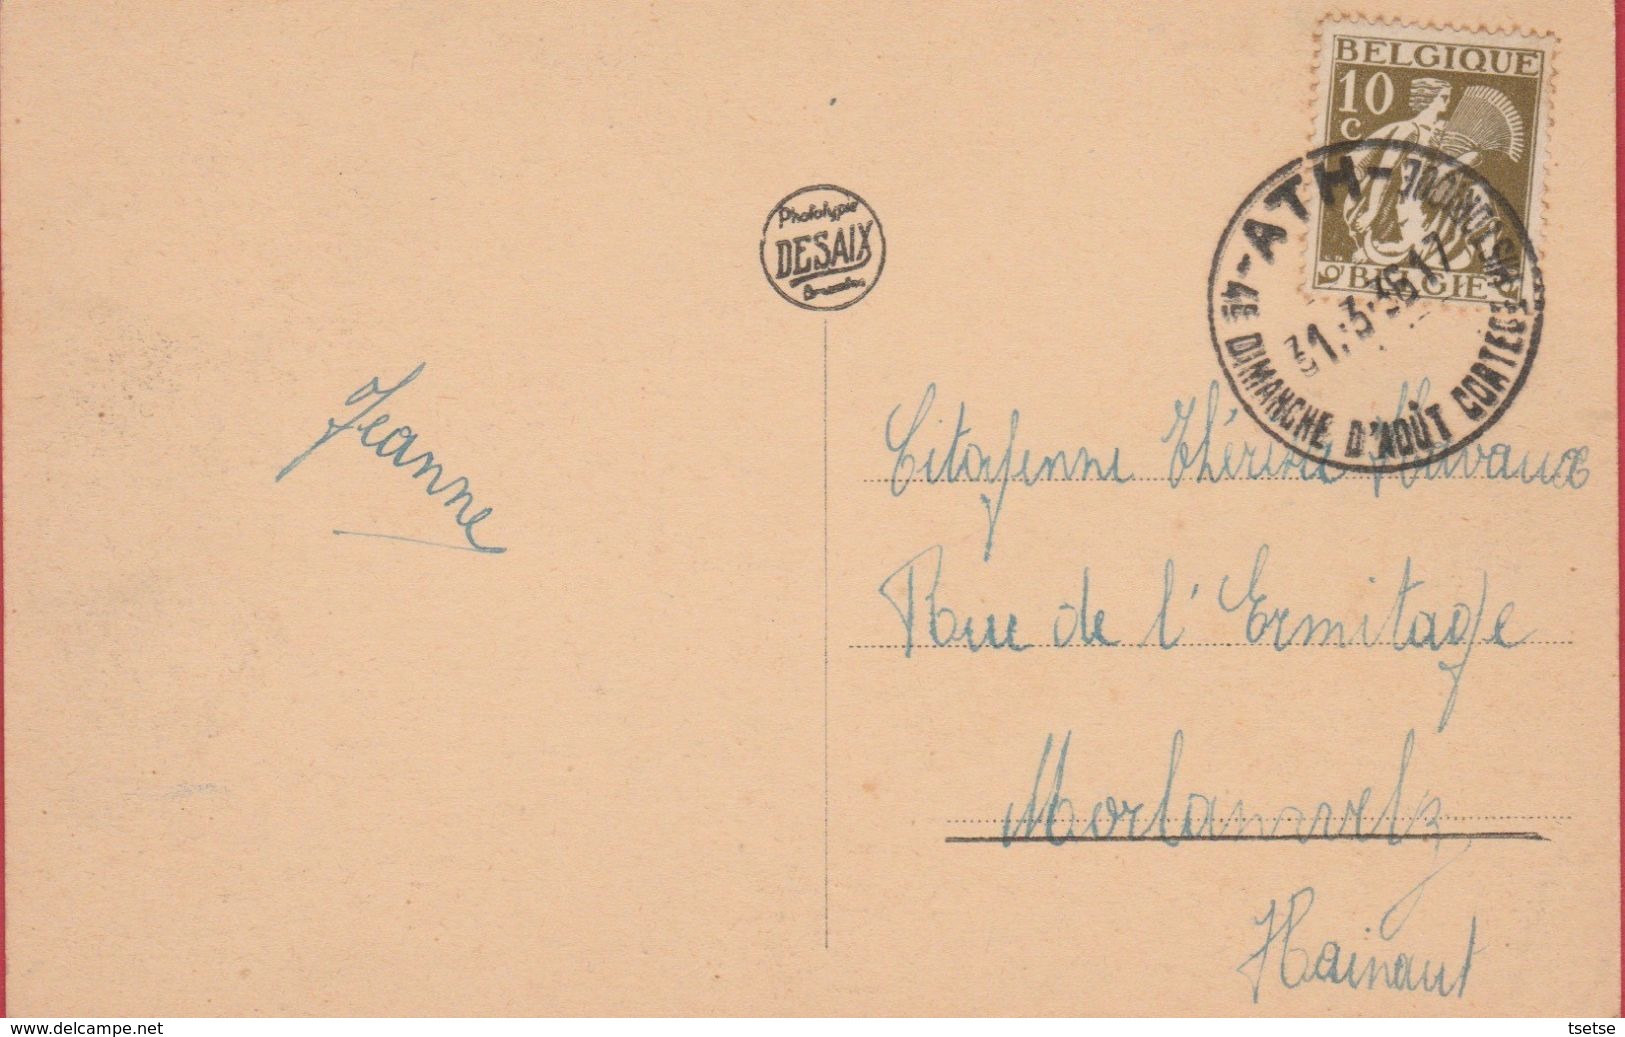 BELGIQUE
10
C
BELGIË
ATH - 4E DIMANCHE D'AOÛT CORTEGE HISTORIQUE
31.3.36 17
Phototypie
DESAIX
Bruxelles
Jeanne
Citoyenne Thérèse
Rue de l'Ermitage
Morlanwelz
Hainaut
www.delcampe.net
tsetse